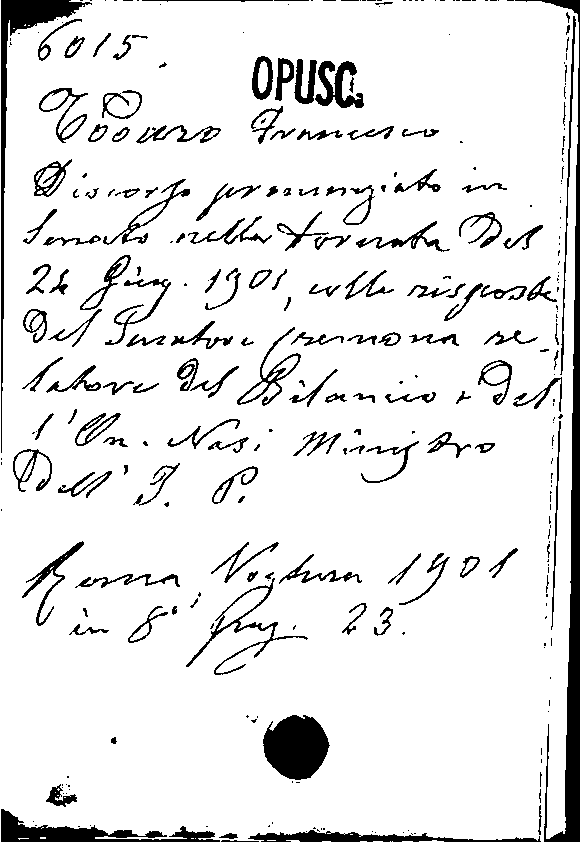 6015.
OPUSC.
Todaro Francesco
Discorso pronunziato in
Senato nella tornata del
24 Giug. 1901, colle risposte
del Senatore Cremona re-
latore del Bilancio e del
l'On. Nasi Ministro
dell' I. P.
Roma Voghera 1901
in 8° pag. 23.